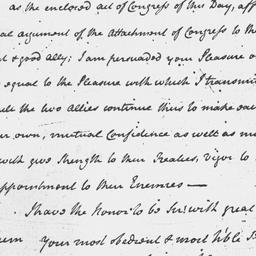 as the enclosed act of Congress of this Day, aff
al argument of the Attachment of Congress to th
t & good Ally; I am persuaded your Pleasure o
equal to the Pleasure with which I transmi
the two Allies continue thus to make
own, mutual Confidence as well as m
with give Strength to their Treaties, Vigor to
appointment to their Enemies —
I have the Honor to be Sir with great
Your most obedient & most hble S